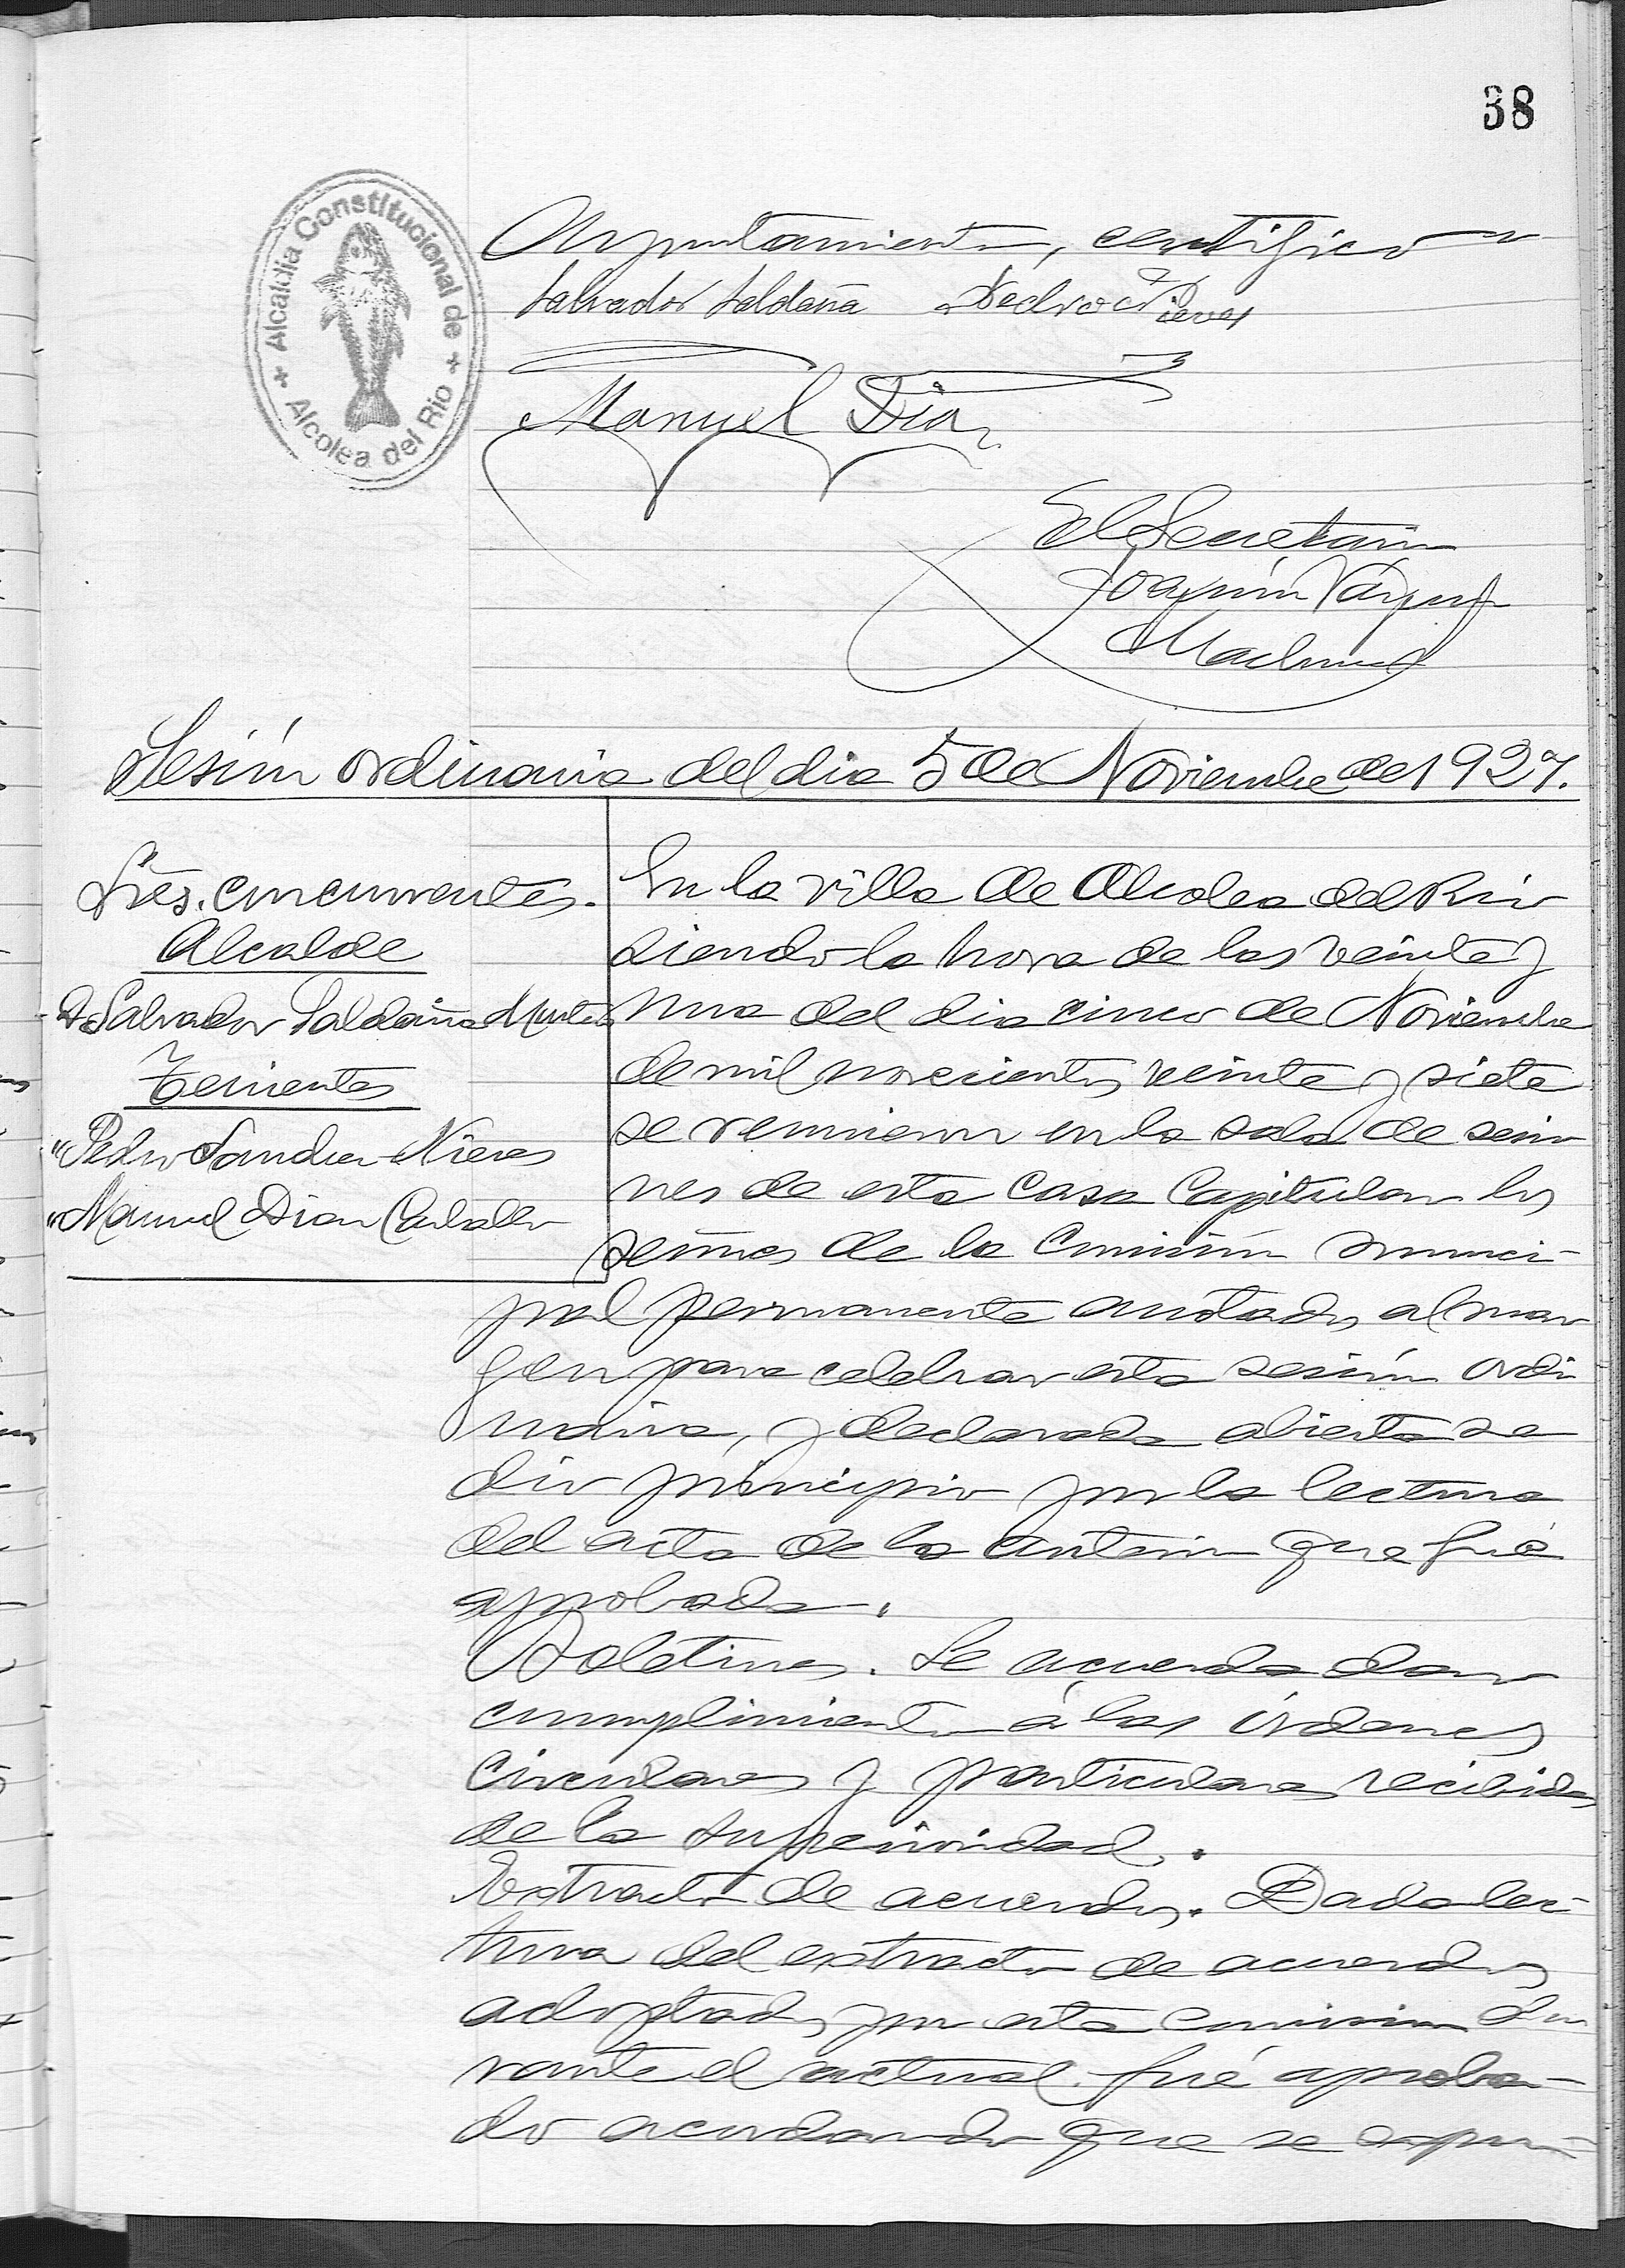 38
Alcaldia Constitucional de
Alcolea del Rio
Ayuntamiento, certifico
Salvador Saldaña Pedro Nieves
Manuel Diaz
El Secretario
Joaquín Vázquez
Sesión ordinaria del dia 5 de Noviembre de 1927.
Sres. concurrentes.
Alcalde
D. Salvador Saldaña Montes
Tenientes
" Pedro Sanchez Nieves
" Manuel Diaz Carballo
En la villa de Alcolea del Rio
siendo la hora de las veinte y
una del dia cinco de Noviembre
de mil novecientos veinte y siete
se reunieron en la sala de sesio
nes de esta Casa Capitular los
señores de la Comisión munici-
pal permanente anotados al mar
gen para celebrar esta sesión ordi
naria, y declarada abierta se
dio principio por la lectura
del acta de la anterior que fué
aprobada.
Boletines. Se acuerda dar
cumplimiento á las órdenes
circulares y particulares recibidas
de la superioridad.
Extracto de acuerdos. Dada lec-
tura del extracto de acuerdos
adoptados por esta comision du
rante el actual fué aproba-
do acordando que se